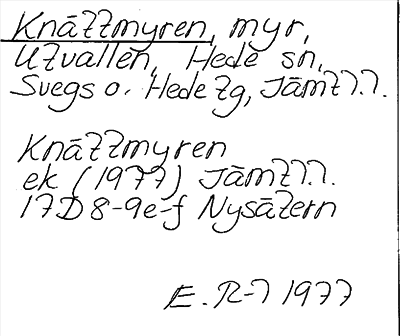 Knättmyren, myr,
Utvallen, Hede sn,
Svegs o. Hede tg, Jämtl.l.
Knättmyren
ek (1977) Jämtl.l.
17D 8-9e-f Nysätern
E. R-l 1977